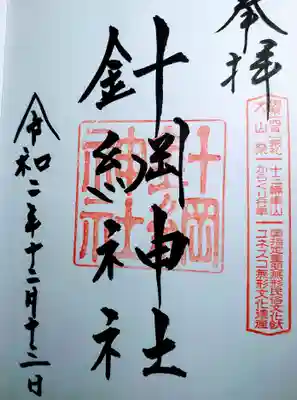 奉拝
犬山祭
十三輌車山
からくり行事
国指定重要無形民俗文化財
ユネスコ無形文化遺産
針綱神社
針綱神社
令和二年十二月十二日